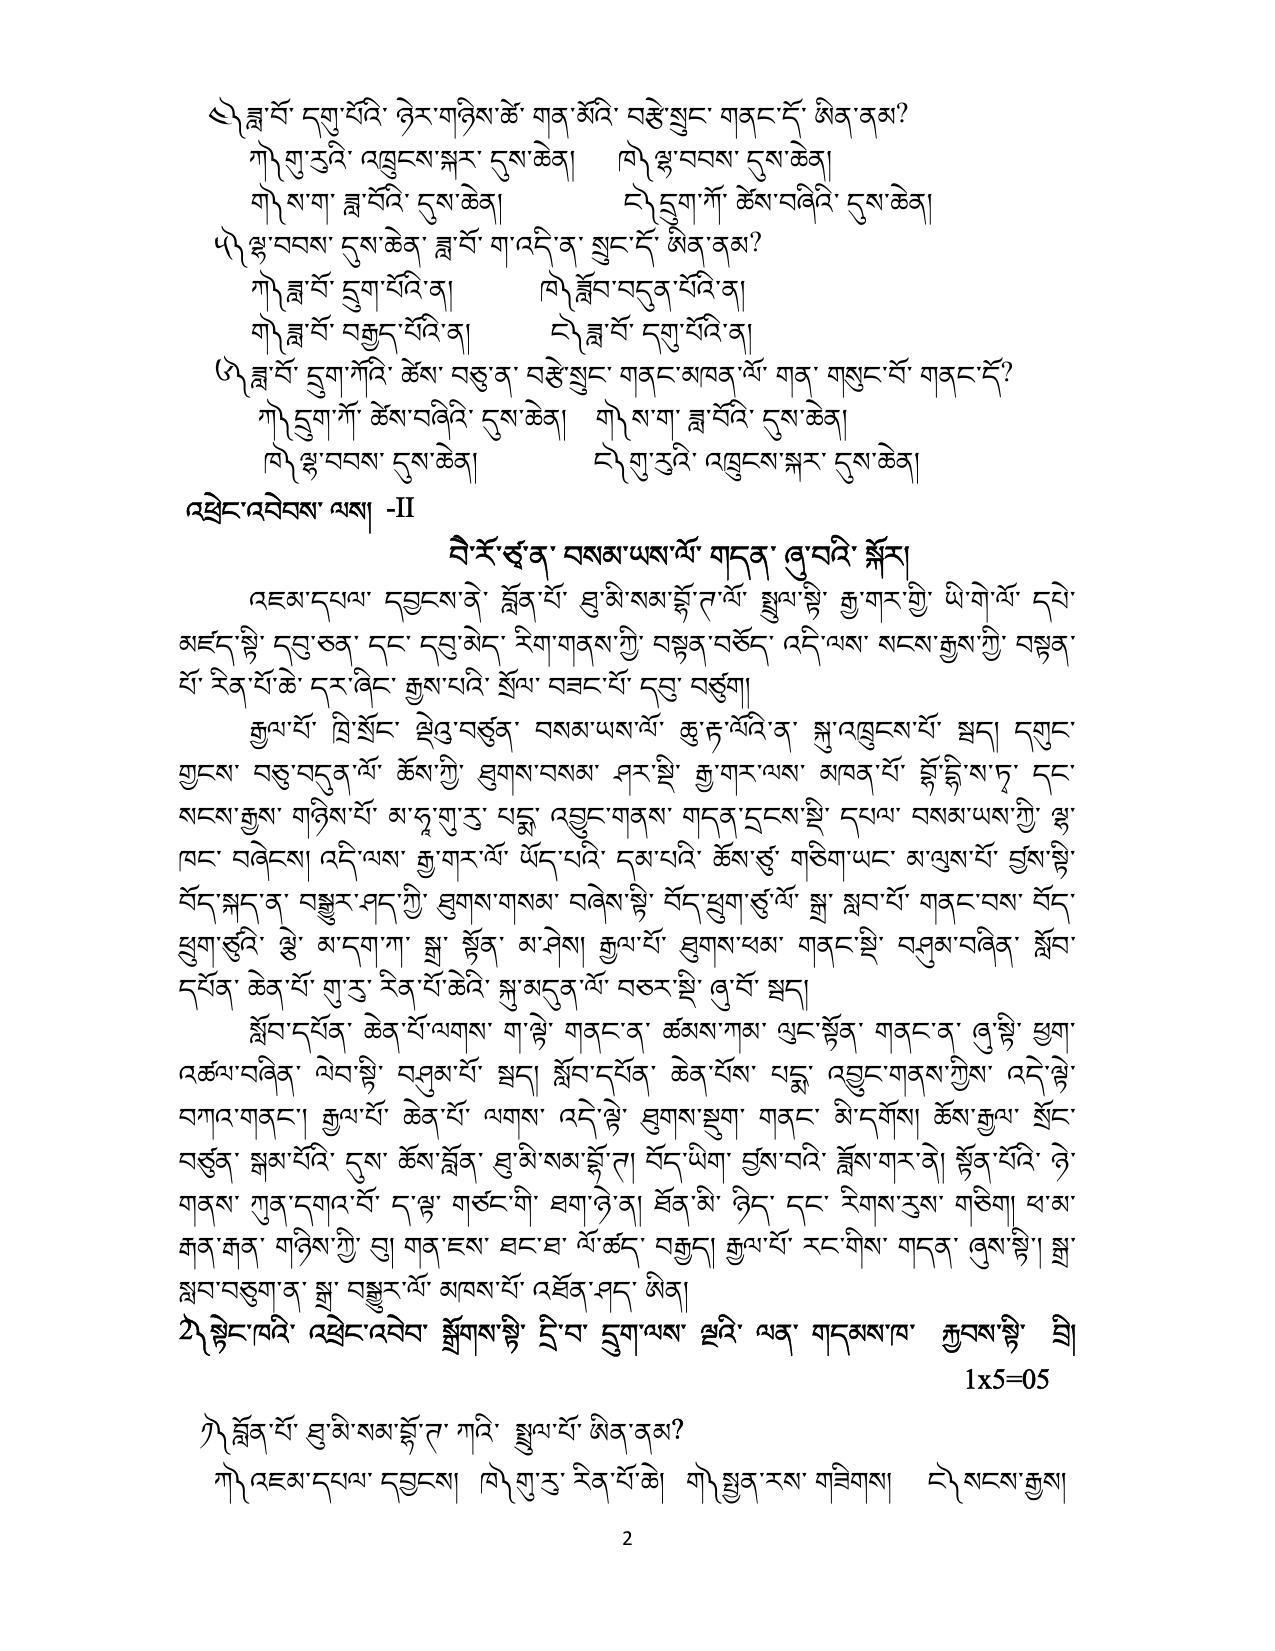 ༤༽ ཟླ་བོ་ དགུ་པོའི་ ཉེར་གཉིས་ཚེ་ གན་མོའི་ བརྩེ་སྲུང་ གནང་དོ་ ཨིན་ནམ?
ཀ༽ གུ་རུའི་ འཁྲུངས་སྐར་ དུས་ཆེན། ཁ༽ ལྷ་བབས་ དུས་ཆེན།
ག༽ ས་ག་ ཟླ་བོའི་ དུས་ཆེན། ང༽ དྲུག་ཀོ་ ཚེས་བཞིའི་ དུས་ཆེན།
༥༽ ལྷ་བབས་ དུས་ཆེན་ ཟླ་བོ་ ག་འདི་ན་ སྲུང་དོ་ ཨིན་ནམ?
ཀ༽ ཟླ་བོ་ དྲུག་པོའི་ན། ཁ༽ ཟློབ་བདུན་པོའི་ན།
ག༽ ཟླ་བོ་ བརྒྱད་པོའི་ན། ང༽ ཟླ་བོ་ དགུ་པོའི་ན།
༦༽ ཟླ་བོ་ དྲུག་ཀོའི་ ཚེས་ བཅུ་ན་ བརྩེ་སྲུང་ གནང་མཁན་ལོ་ གན་ གསུང་བོ་ གནང་དོ?
ཀ༽ དྲུག་ཀོ་ ཚེས་བཞིའི་ དུས་ཆེན། ག༽ ས་ག་ ཟླ་བོའི་ དུས་ཆེན།
ཁ༽ ལྷ་བབས་ དུས་ཆེན། ང༽ གུ་རུའི་ འཁྲུངས་སྐར་ དུས་ཆེན།
འཕྲེང་འབེབས་ ལས། -II
བཻ་རོ་ཙྭ་ན་ བསམ་ཡས་ལོ་ གདན་ ཞུ་བའི་ སྐོར།
འཇམ་དཔལ་ དབྱངས་ནེ་ བློན་པོ་ ཐུ་མི་སམ་བྷོ་ཊ་ལོ་ སྤྲུལ་སྟི་ རྒྱ་གར་གྱི་ ཡི་གེ་ལོ་ དཔེ་
མཛད་སྟི་ དབུ་ཅན་ དང་ དབུ་མེད་ རིག་གནས་ཀྱི་ བསྟན་བཅོད་ འདི་ལས་ སངས་རྒྱས་ཀྱི་ བསྟན་
པོ་ རིན་པོ་ཆེ་ དར་ཞིང་ རྒྱས་པའི་ སྲོལ་ བཟང་པོ་ དབུ་ བཙུག།
རྒྱལ་པོ་ ཁྲི་སྲོང་ ལྡེའུ་བཙུན་ བསམ་ཡས་ལོ་ ཆུ་རྟ་ལོའི་ན་ སྐུ་འཁྲུངས་པོ་ སྦད། དགུང་
གྲངས་ བཅུ་བདུན་ལོ་ ཆོས་ཀྱི་ ཐུགས་བསམ་ ཤར་སྡི་ རྒྱ་གར་ལས་ མཁན་པོ་ བྷོ་དྷི་ས་ཏྭ་ དང་
སངས་རྒྱས་ གཉིས་པོ་ མ་ཧཱ་གུ་རུ་ པདྨ་ འབྱུང་གནས་ གདན་དྲངས་སྡི་ དཔལ་ བསམ་ཡས་ཀྱི་ ལྷ་
ཁང་ བཞེངས། འདི་ལས་ རྒྱ་གར་ལོ་ ཡོད་པའི་ དམ་པའི་ ཆོས་ཙུ་ གཅིག་ཡང་ མ་ལུས་པོ་ བྱས་སྟི་
བོད་སྐད་ན་ བསྒྱུར་ཤད་ཀྱི་ ཐུགས་གསམ་ བཞེས་སྟི་ བོད་ཕྲུག་ཙུ་ལོ་ སྒྲ་ སླབ་པོ་ གནང་བས་ བོད་
ཕྲུག་ཙུའི་ ལྕེ་ མ་དག་ཀ་ སྒྲ་ སྟོན་ མ་ཤེས། རྒྱལ་པོ་ ཐུགས་ཕམ་ གནང་སྡི་ བཤུམ་བཞིན་ སློབ་
དཔོན་ ཆེན་པོ་ གུ་རུ་ རིན་པོ་ཆེའི་ སྐུ་མདུན་ལོ་ བཅར་སྡི་ ཞུ་བོ་ སྦད།
སློབ་དཔོན་ ཆེན་པོ་ལགས་ ག་ལྟེ་ གནང་ན་ ཚམས་ཀམ་ ལུང་སྟོན་ གནང་ན་ ཞུ་སྟི་ ཕྱག་
འཚལ་བཞིན་ ལེབ་སྟི་ བཤུམ་པོ་ སྦད། སློབ་དཔོན་ ཆེན་པོས་ པདྨ་ འབྱུང་གནས་ཀྱིས་ འདེ་ལྟེ་
བཀའ་གནང་། རྒྱལ་པོ་ ཆེན་པོ་ ལགས་ འདེ་ལྟེ་ ཐུགས་སྡུག་ གནང་ མི་དགོས། ཆོས་རྒྱལ་ སྲོང་
བཙུན་ སྒམ་པོའི་ དུས་ ཆོས་བློན་ ཐུ་མི་སམ་བྷོ་ཊ། བོད་ཡིག་ བྱས་བའི་ ཟློས་གར་ནེ། སྟོན་པོའི་ ཉེ་
གནས་ ཀུན་དགའ་བོ་ ད་ལྟ་ གཙང་གི་ ཐག་ཉེ་ན། ཐོན་མི་ ཉིད་ དང་ རིགས་རུས་ གཅིག། ཕ་མ་
རྒན་རྒན་ གཉིས་ཀྱི་ བུ། གན་ཇས་ ཐང་ཐ་ ལོ་ཚད་ བརྒྱད། རྒྱལ་པོ་ རང་གིས་ གདན་ ཞུས་སྟི། སྒྲ་
སླབ་བཅུག་ན་ སྒྲ་ བསྒྱུར་ལོ་ མཁས་པོ་ འཐོན་ཤད་ ཨིན།
2༽ སྟེང་ཁའི་ འཕྲེང་འབེབ་ སྒྲོགས་སྟི་ དྲི་བ་ དྲུག་ལས་ ལྔའི་ ལན་ གདམས་ཁ་ རྐྱབས་སྟི་ བྲི།
1x5=05
༡༽ བློན་པོ་ ཐུ་མི་སམ་བྷོ་ཊ་ ཀའི་ སྤྲུལ་པོ་ ཨིན་ནམ?
ཀ༽ འཇམ་དཔལ་ དབྱངས། ཁ༽ གུ་རུ་ རིན་པོ་ཆེ། ག༽ སྤྱན་རས་ གཟིགས། ང༽ སངས་རྒྱས།
2